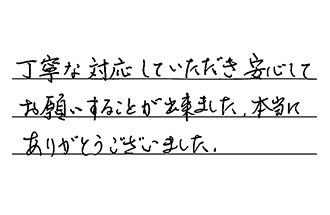 丁寧な対応していただき安心して
お願いすることが出来ました。本当に
ありがとうございました。